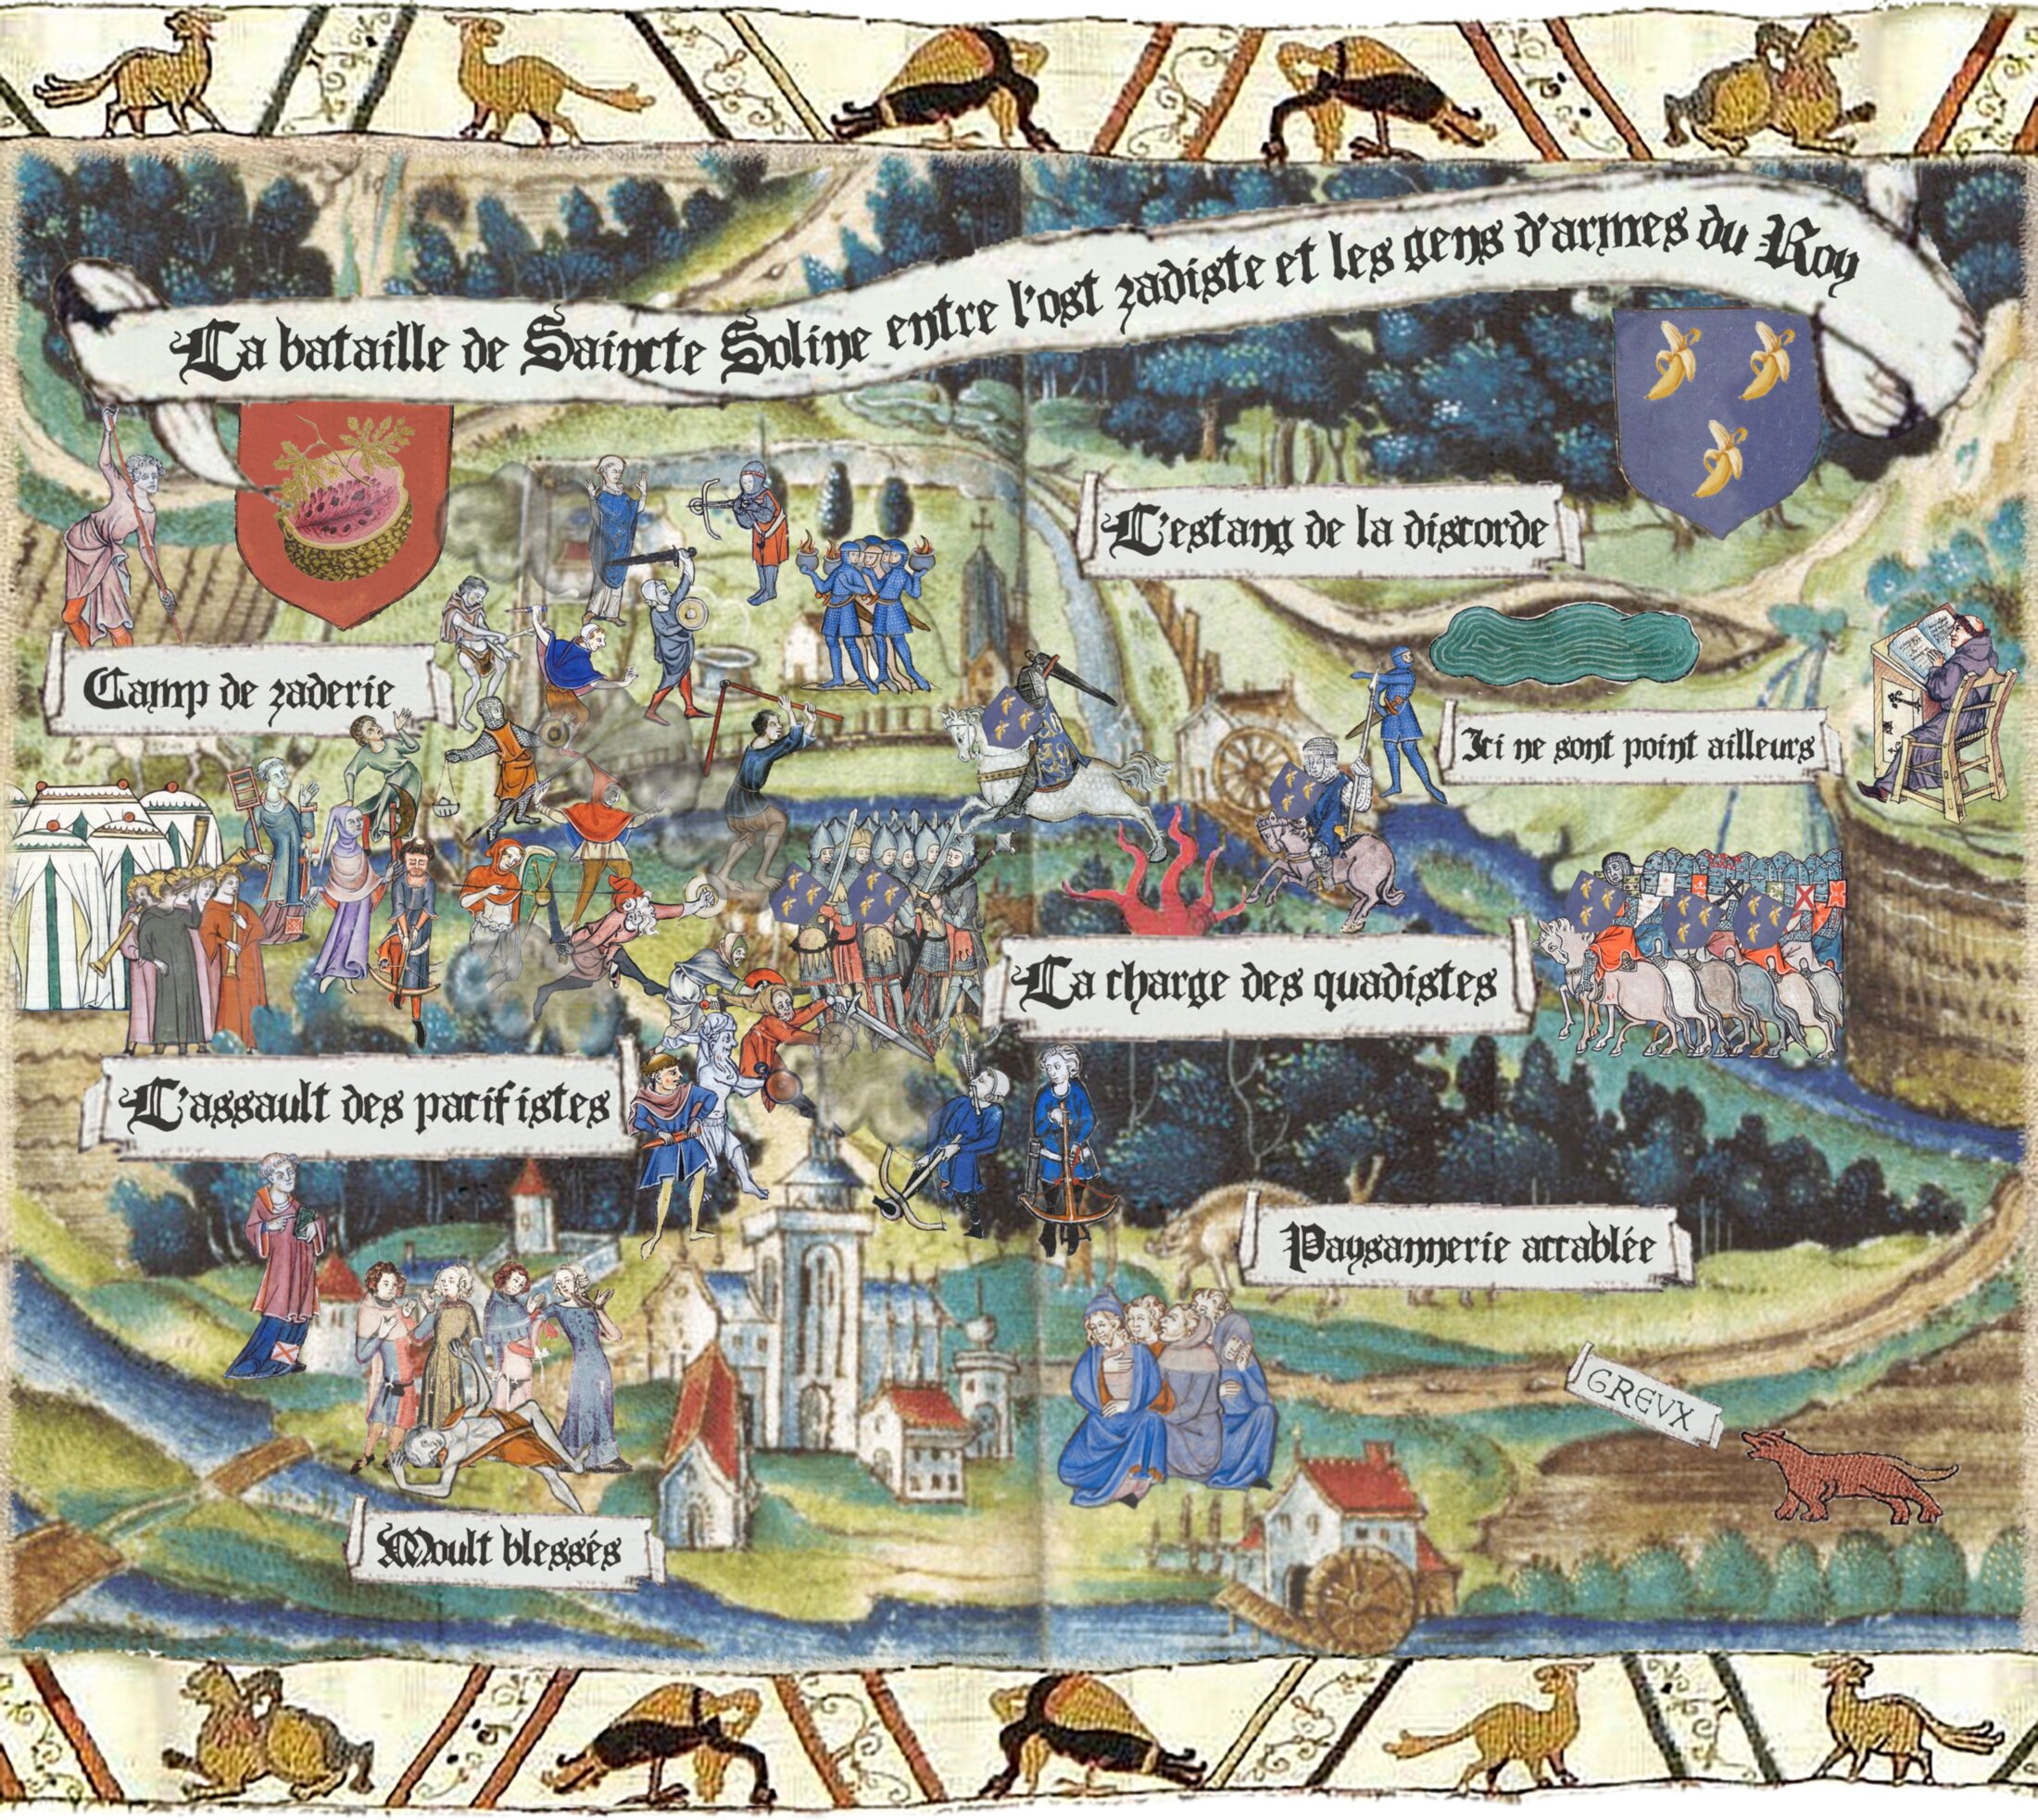 La bataille de Saincte Soline entre l'ost zadiste et les gens d'armes du Roy
L'estang de la discorde
Camp de zaderie
Ici ne sont point ailleurs
La charge des quadistes
L'assault des pacifistes
Paysannerie accablée
GREVX
Moult blessés